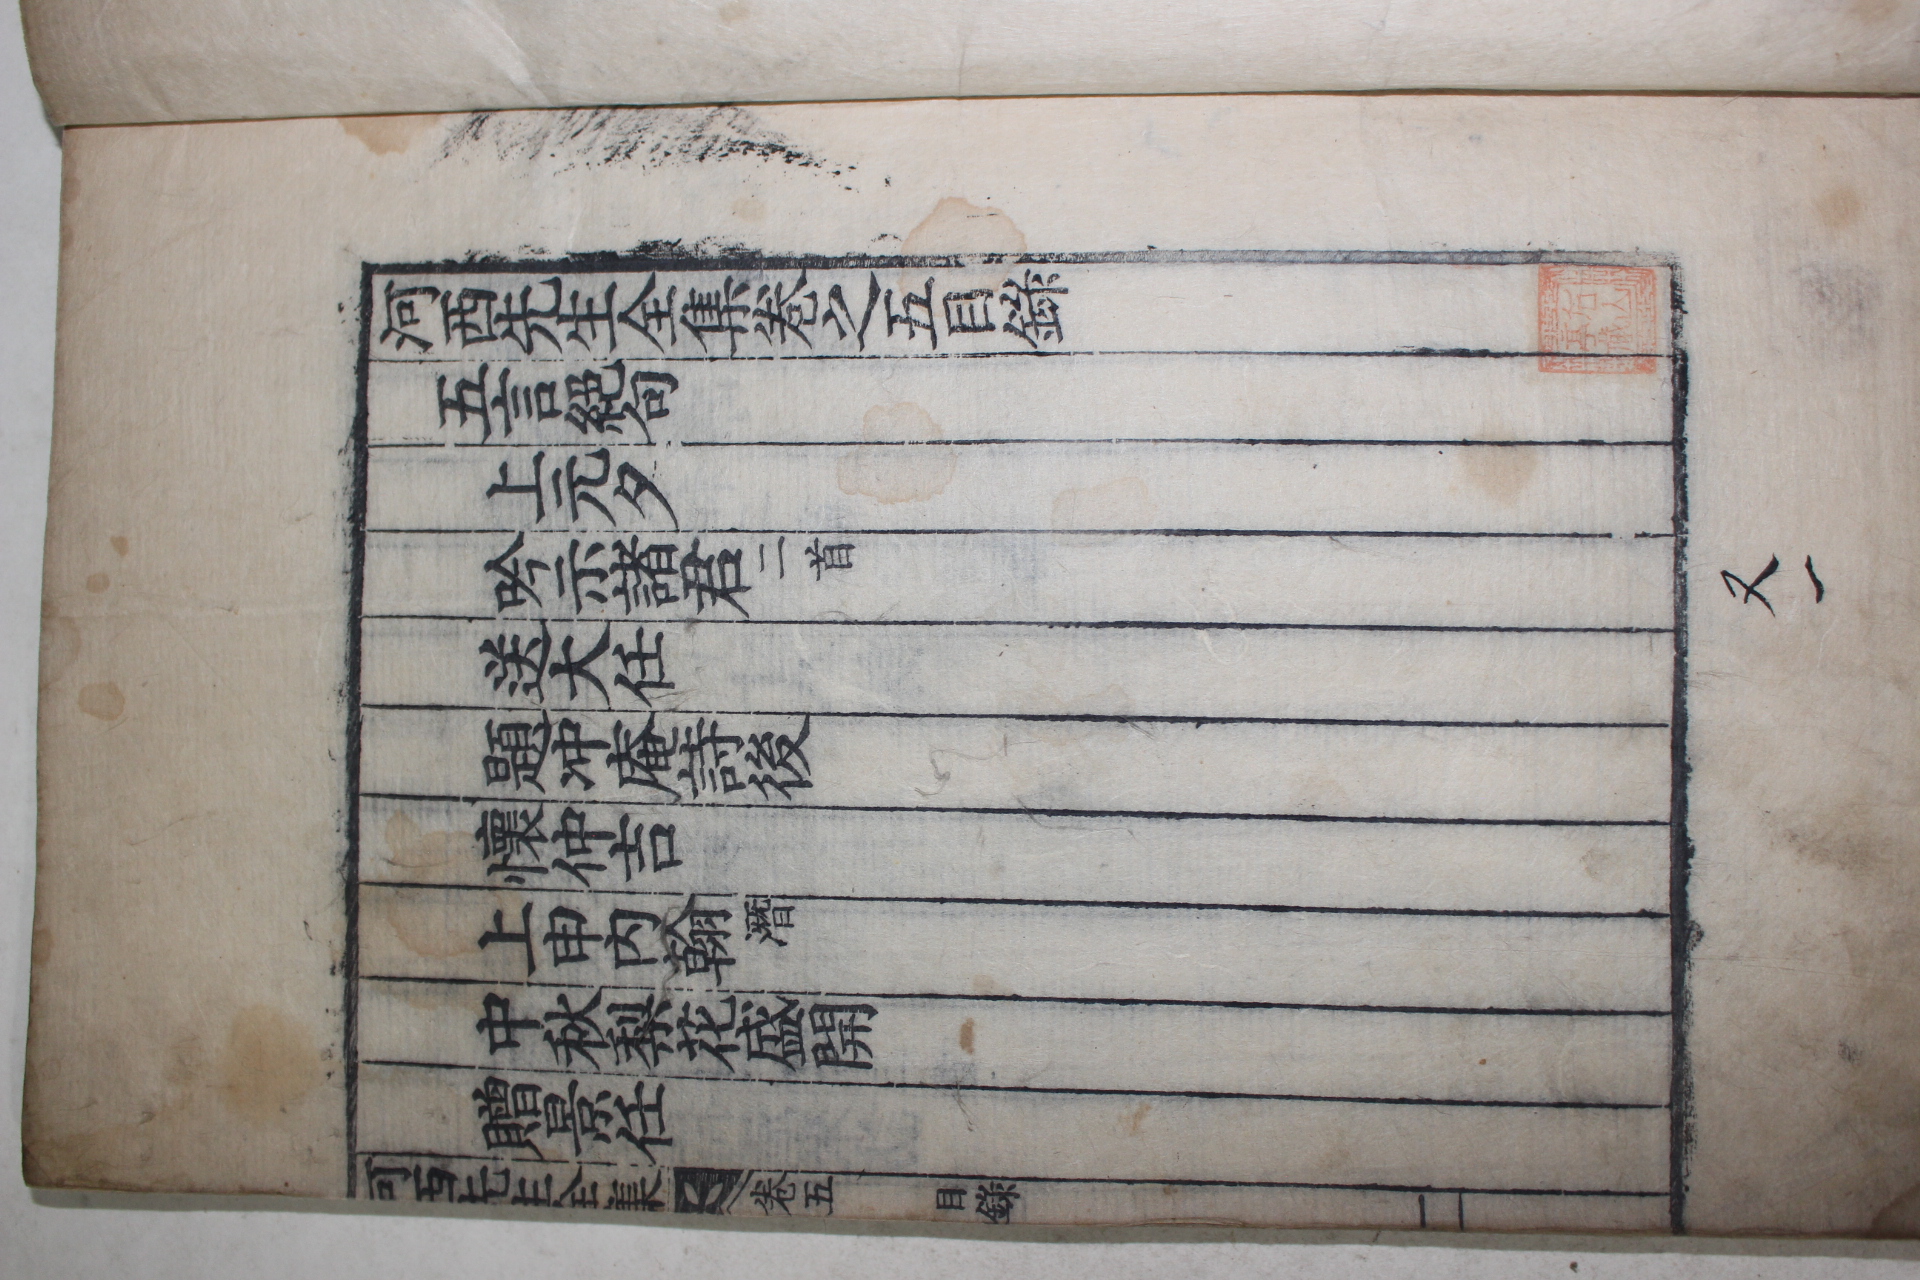 河西先生全集卷之五目錄
五言絶句
上元夕
吟示諸君二首
送大任
題冲庵詩後
懷仲吉
上申内翰潛
中秋梨花盛開
贈景任
河西先生全集 卷五 目錄 一